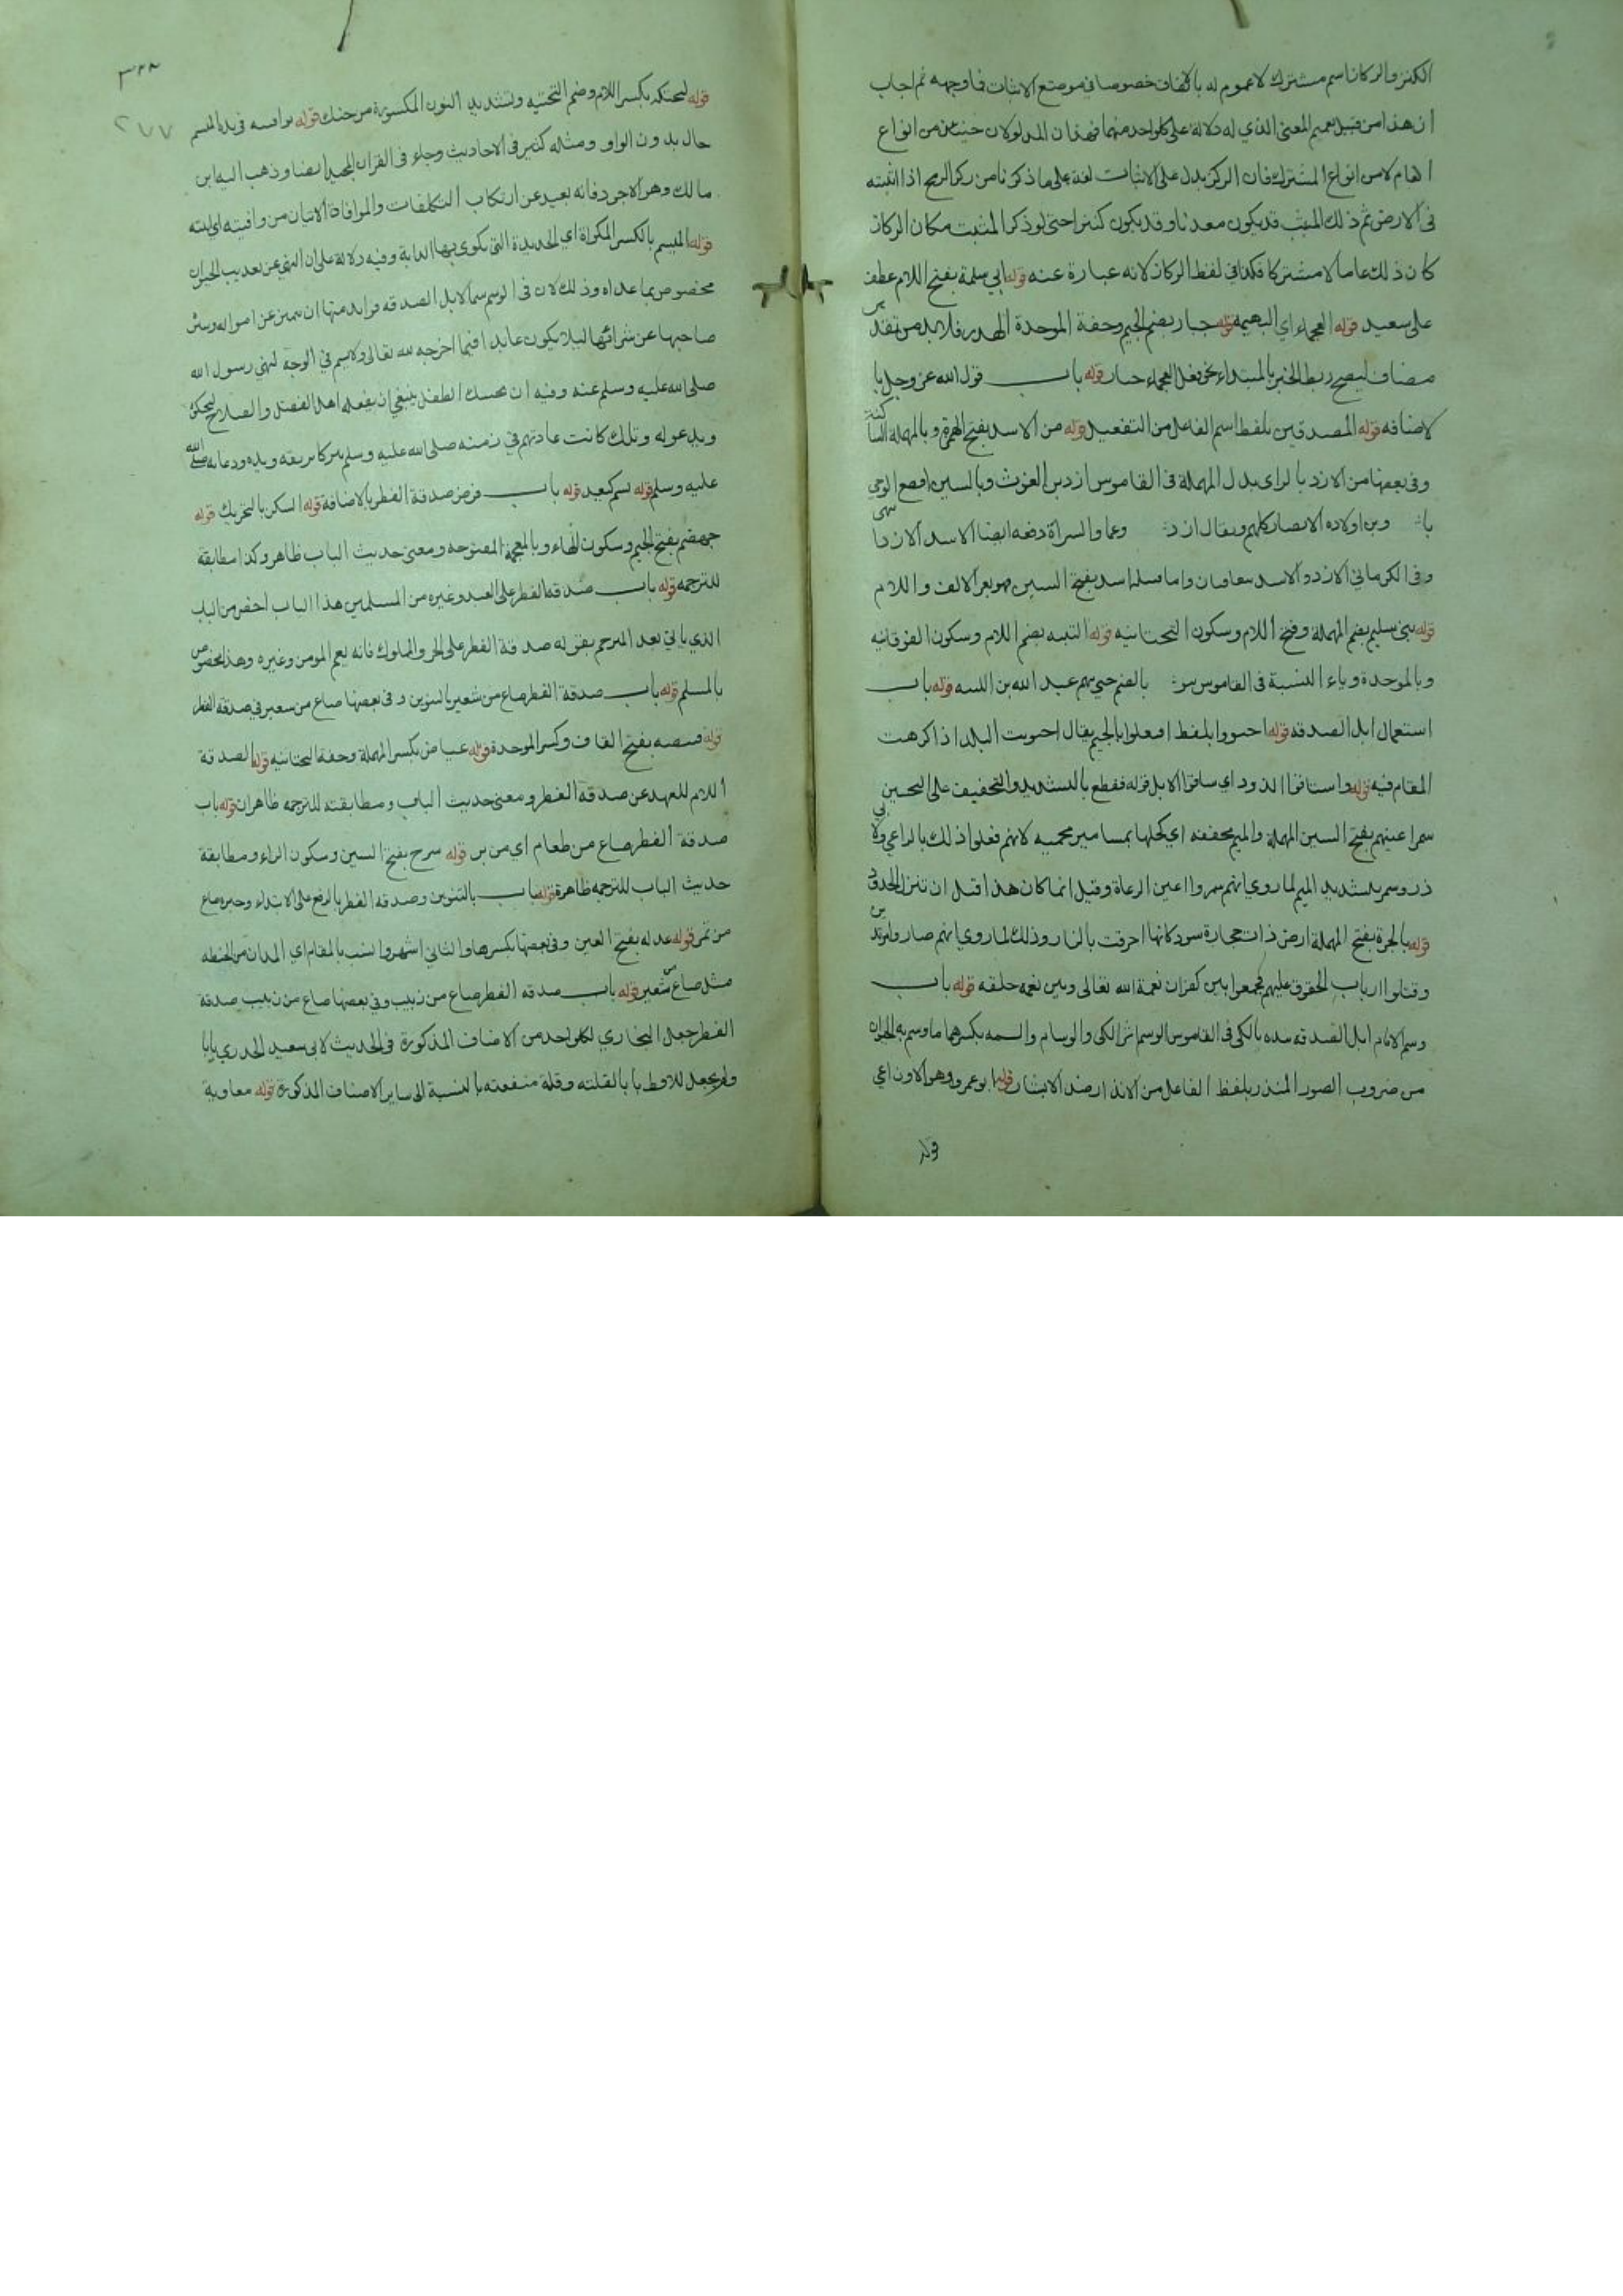 الكنز والركاز اسم مشترك لا عموم له بالاتفاق خصوصا في موضع الاثبات فما وجهه ثم اجاب
ان هذا من قبيل تعميم المعنى الذي له دلالة على كل واحد منهما فهذان المدلولان حينئذ من انواع
العام لا من انواع المشترك فان الركز يدل على الاثبات لغة على ما ذكرنا من ركز الرمح اذا اثبته
في الارض ثم ذلك المثبت قد يكون معدنا وقد يكون كنزا حتى لو ذكر المثبت مكان الركاز
كان ذلك عاما لا مشتركا فكذا في لفظ الركاز لانه عبارة عنه قوله ابي سلمة بفتح اللام عطف
على سعيد قوله العجماء اي البهيمة قوله جبار بضم الجيم وخفة الموحدة الهدر فلا بد من تقدير
مضاف ليصح ربط الخبر بالمبتداء نحو فعل العجماء جبار قوله باب قول الله عز وجل با
لاضافه قوله المصدقين بلفظ اسم الفاعل من التفعيل قوله من الاسد بفتح الهمزة و بالمهملة الساكنة
وفي بعضها من الازد بالزاى بدل المهملة في القاموس ازد بن الغوث وبالسين افصح ابو حي
باليمن ومن اولاده الانصار كلهم ويقال ازد وعمان والسراة
وفي الكرماني الازد والاسد
قوله بني سليم بضم المهملة وفتح اللام وسكون التحتانيه قوله التبيه بضم اللام وسكون الفوقانيه
وبالموحدة وياء النسبة في القاموس بالضم حي منهم عبد الله بن اللتبيه قوله باب
استعمال ابل الصدقه قوله اجتووا بلفظ افتعلوا بالجيم يقال اجتويت البلد اذا كرهت
المقام فيه قوله واستاقوا الذود اي ساقوا الابل قوله فقطع بالتشديد والتخفيف على التحسين
سمر اعينهم بفتح السين المهملة والميم مخففه اي كحلها بمسامير محميه لانهم فعلوا ذلك بالراعي ولابي
ذر وسمر بتشديد الميم لما روي انهم سمروا اعين الرعاة وقيل انما كان هذا قبل ان تنزل الحدود
قوله بالحرة بفتح المهملة ارض ذات حجارة سود كانها احرقت بالنار وذلك لما روي انهم صاروا مرتدين
وقتلوا ارباب الحقوق عليهم فجمعوا بين كفران نعمة الله تعالى وبين نعمه خلقه قوله باب
وسم الامام ابل الصدقه بيده بالكى في القاموس الوسم اثر الكى والوسام والسمه بكسرهما ما وسم به الحيوان
من ضروب الصور المنذر بلفظ الفاعل من الانذار ضد الابشار قوله ابو عمرو وهو الاوزاعي
قوله
٢٧٧
قوله ليحنكه بكسر اللام وضم التحتيه وتشديد النون المكسورة من حنك قوله فوافيته في يده الميسم
حال بدون الواو ومثله كثير في الاحاديث وجاء في القران المجيد ايضا وذهب اليه ابن
مالك وهو الاجود فانه بعيد عن ارتكاب التكلفات والموافاة الاتيان من وافيته اي اتيته
قوله الميسم بالكسر المكواة اي الحديدة التي يكوى بها الدابة وفيه دلالة على ان النهي عن تعذيب الحيوان
مخصوص بما عداه وذلك لان في الوسم سيما لابل الصدقه فوايد منها ان تتميز عن
صاحبها عن شرائها ليلا يكون عايدا فيما اخرجه لله تعالى ولا يسم في الوجه لنهي رسول الله
صلى الله عليه وسلم عنه وفيه ان تحنيك الطفل ينبغي ان يفعله اهل الفضل والصلاح ليحنكه
ويدعو له وتلك كانت عادتهم في زمنه صلى الله عليه وسلم تبركا بريقه ويده ودعايه صلى الله
عليه وسلم قوله باب فرض صدقة الفطر بالاضافه قوله السكن بالتحريك قوله
جهضم بفتح الجيم وسكون الهاء وبالمعجمة المفتوحه ومعنى حديث الباب ظاهر وكذا مطابقة
للترجمه قوله باب صدقه الفطر على العبد وغيره من المسلمين هذا الباب اخص من الباب
الذي ياتي بعد المترجم بقوله صدقة الفطر على الحر والمملوك فانه يعم المومن وغيره وهذا مخصوص
بالمسلم قوله باب صدقة الفطر صاع من شعير بالتنوين وفي بعضها صاع من شعير في صدقة الفطر
قوله قبيصه بفتح القاف وكسر الموحدة قوله عياض بكسر المهملة وخفة التحتانيه قوله الصدقة
اللام للعهد عن صدقة الفطر ومعنى حديث الباب ومطابقته للترجمه ظاهران قوله باب
صدقة الفطر صاع من طعام اي من بر قوله سرح بفتح السين وسكون الراء ومطابقة
حديث الباب للترجمه ظاهرة قوله باب بالتنوين وصدقه الفطر بالرفع على الابتداء وخبره صاع
من تمر قوله عدله بفتح العين وفي بعضها بكسرها والثاني اشهر وانسب بالمقام اي المدان من الحنطه
مثل صاع شعير قوله باب صدقه الفطر صاع من زبيب وفي بعضها صاع من زبيب صدقة
الفطر جعل البخاري لكل واحد من الاصناف المذكورة في الحديث لابي سعيد الخدري بابا
ولم يجعل للاقط بابا لقلته وقلة منفعته بالنسبة الى ساير الاصناف المذكورة قوله معاوية